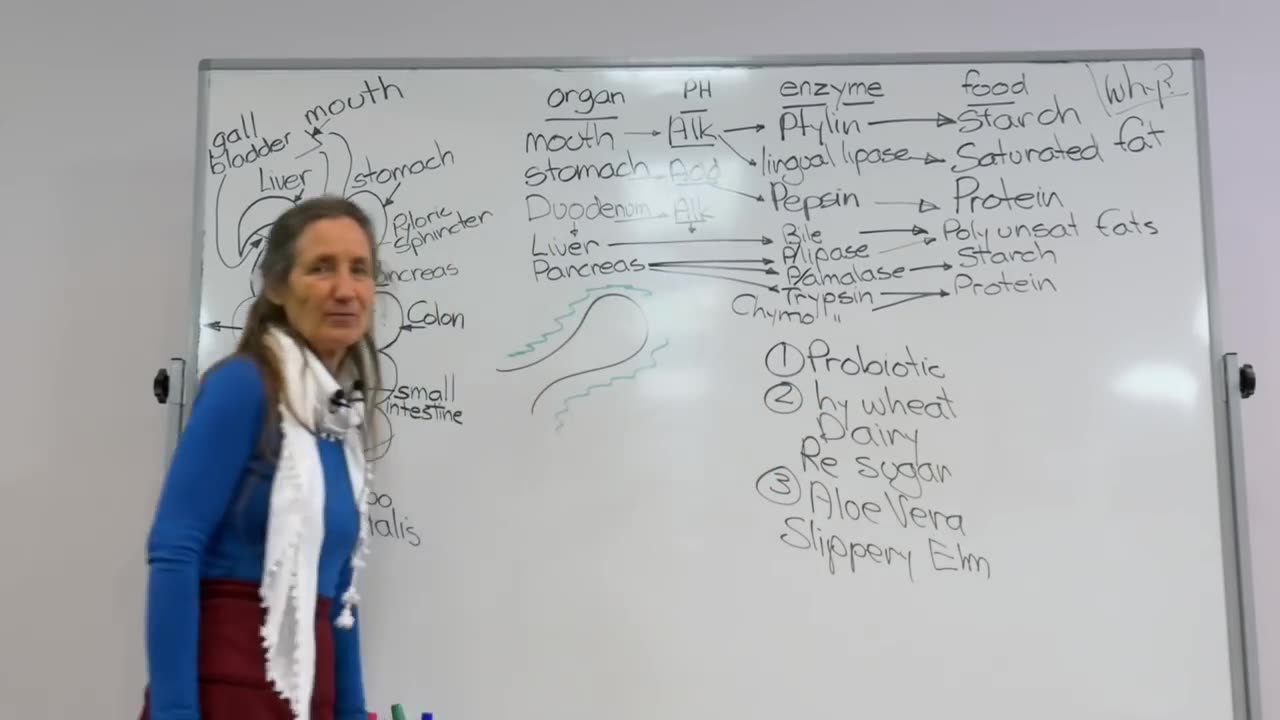 mouth
gall
bladder
Liver
stomach
Pyloric
Sphincter
Pancreas
Colon
small
intestine
organ PH enzyme food Why?
mouth Alk Ptylin Starch
lingual lipase Saturated fat
stomach Acid Pepsin Protein
Duodenum Alk
Liver Bile Poly unsat fats
P/lipase
Pancreas P/amalase Starch
Trypsin Protein
Chymo "
① Probiotic
② hy wheat
Dairy
Re sugar
③ Aloe Vera
Slippery Elm